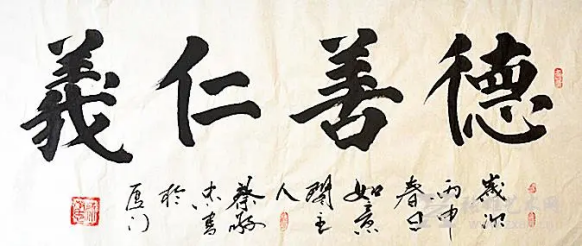 德善仁義
歲次
丙申
春日
如意
閣主
人
於
厦门